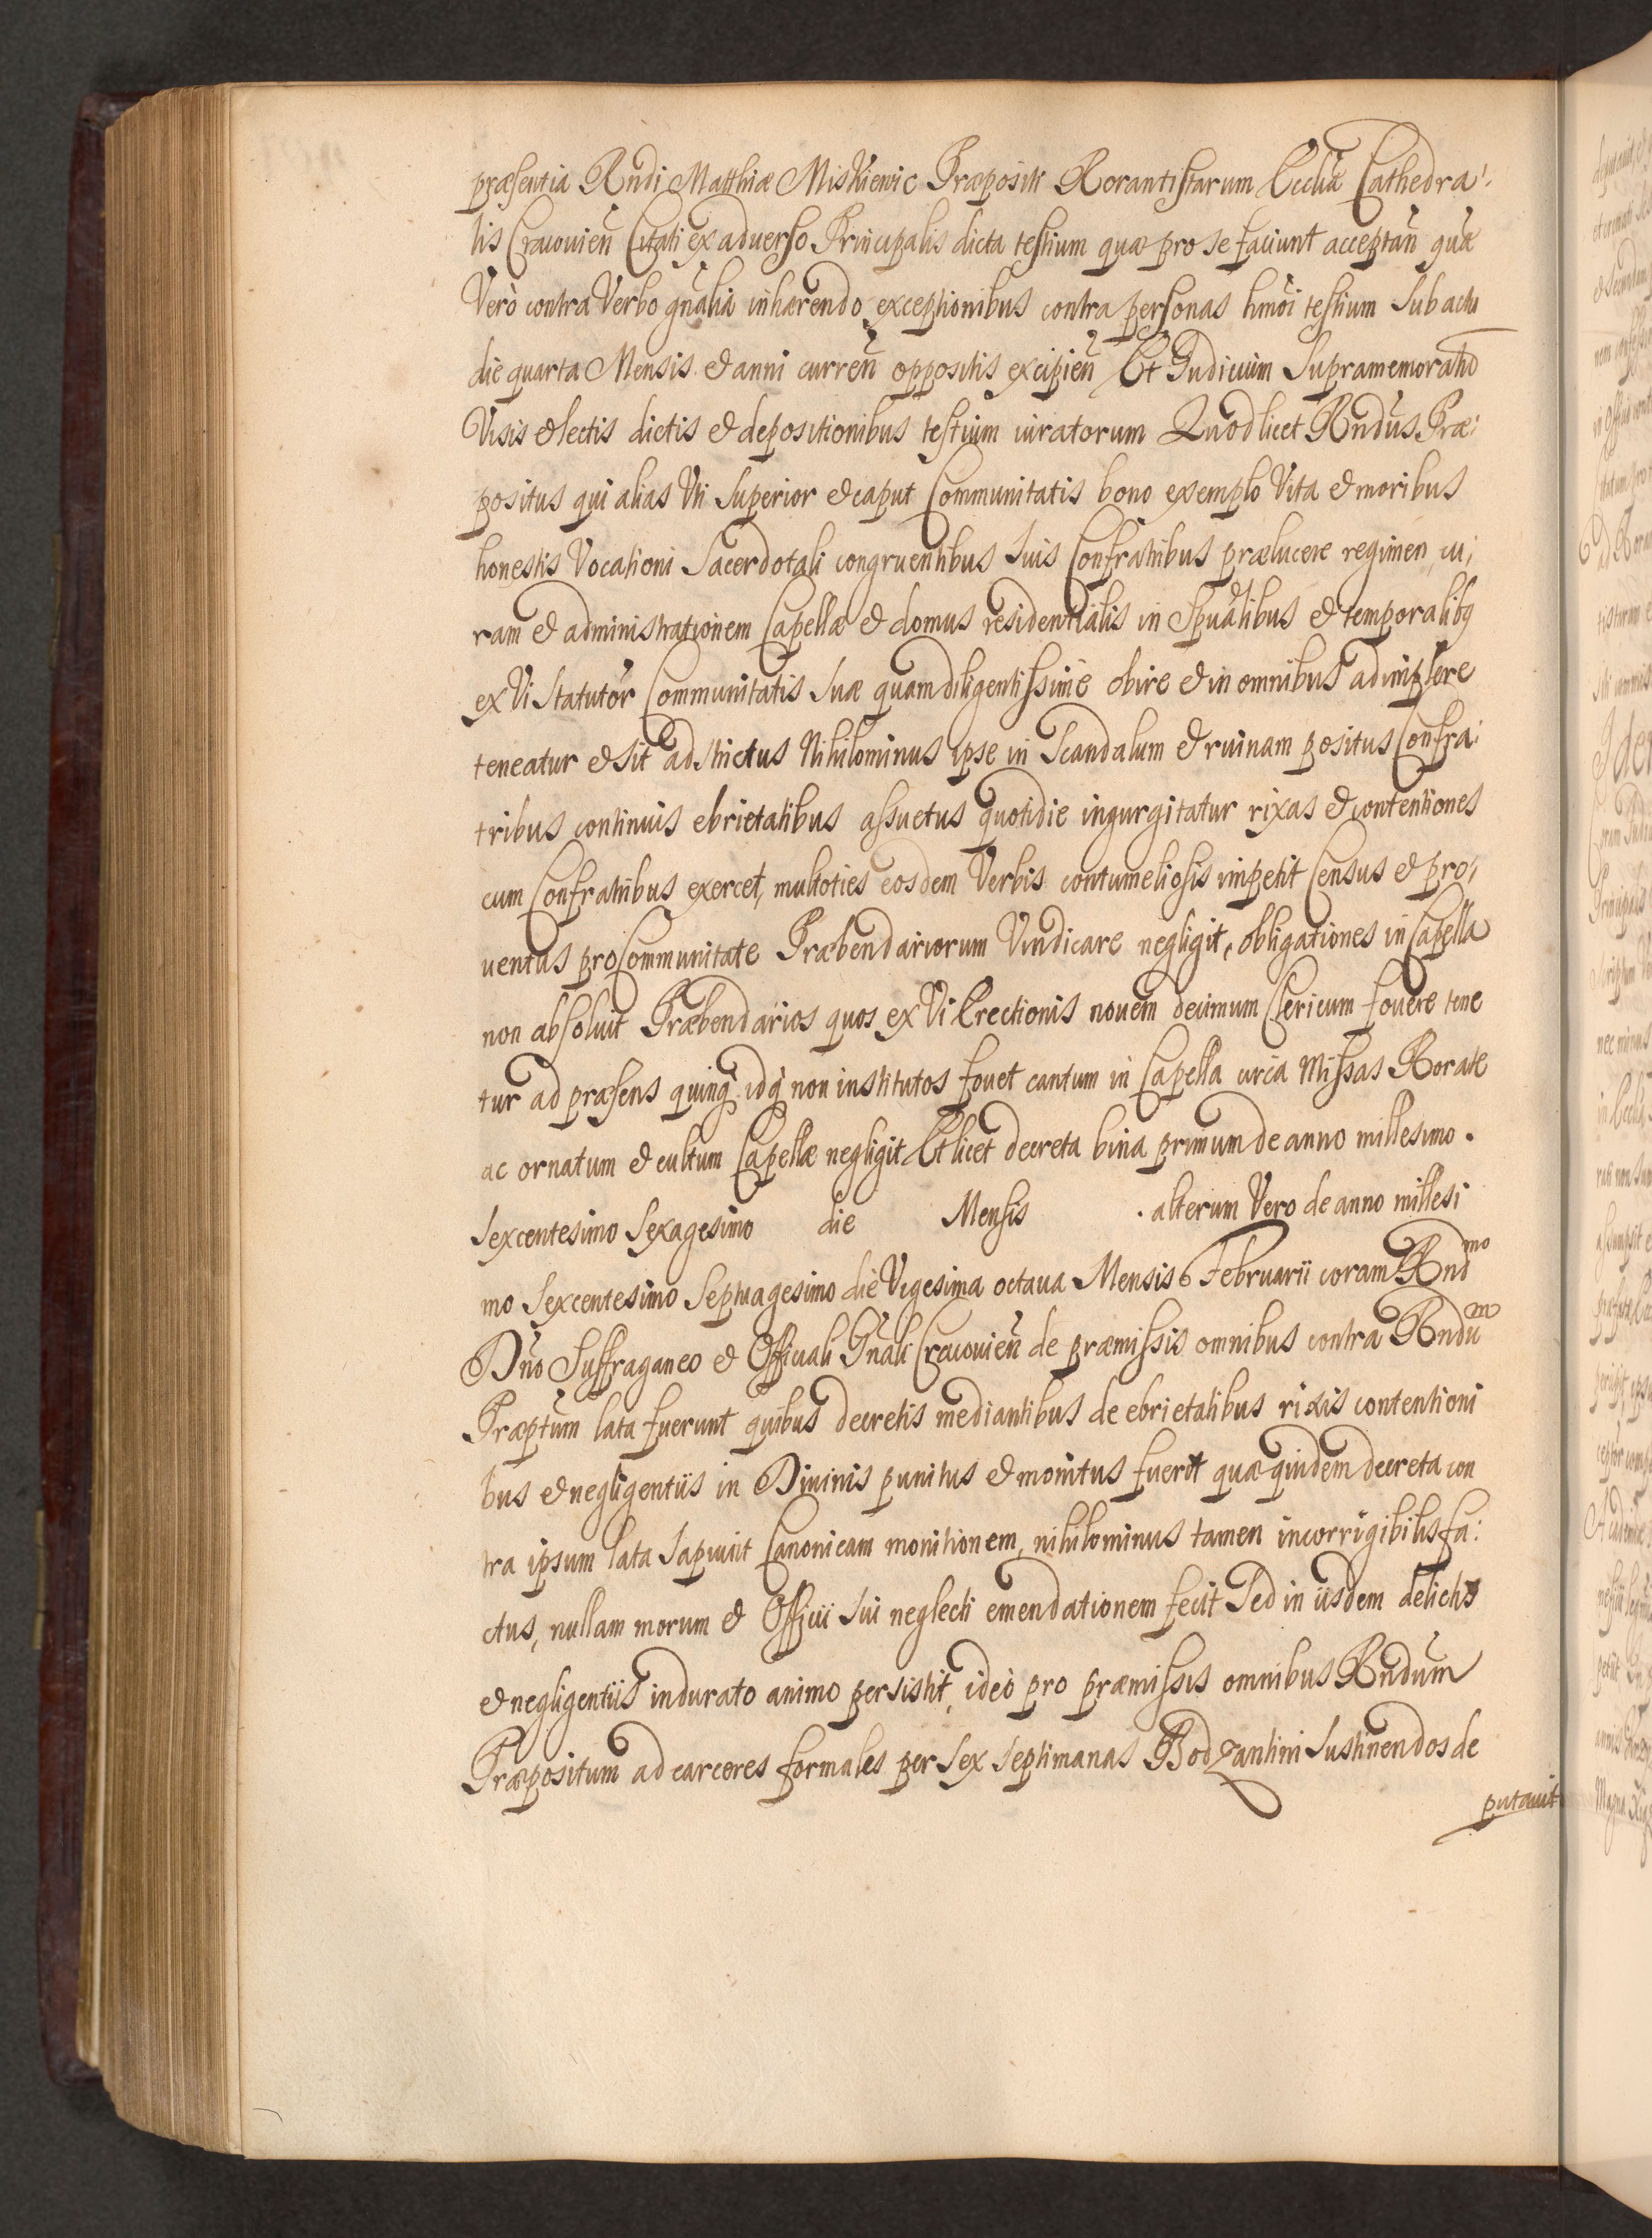 præsentia Rndi Matthiæ Miskiewic Præpositi Rorantistarum Eccliæ Cathedra-
lis Cracouien̄ Citati ex aduerso Principalis dicta testium quæ pro se faciunt acceptan̄ quæ
Verò contra Verbo gn̄alia inhærendo exceptionibus contra personas hmōi testium sub actu
die quarta Mensis & anni curren̄ oppositis excipien̄ Et Iudicium Supramemoratū
Visis & lectis dictis & depositionibus testium iuratorum Quod licet Rndus Præ-
positus qui alias Vti Superior & caput Communitatis bono exemplo Vita & moribus
honestis Vocationi Sacerdotali congruentibus suis Confratribus prælucere regimen, cu-
ram & administrationem Capellæ & domus residentialis in Spūalibus & temporalibq
ex Vi Statutor Communitatis suæ quam diligentissime obire & in omnibus adimplere
teneatur & sit adstrictus Nihilominus ipse in Scandalum & ruinam positus Confra-
tribus continuis ebrietatibus assuetus quotidie ingurgitatur rixas & contentiones
cum Confratribus exercet, multoties eosdem Verbis contumeliosis impetit Census & pro-
uentus pro Communitate Præbendariorum Vindicare negligit, obligationes in Capella
non absoluit Præbendarios quos ex Vi Erectionis nouem decimum Clericum fouere tene
tur ad præsens quinq̄ idq̄ non institutos fouet cantum in Capella circa Missas Rorate
ac ornatum & cultum Capellæ negligit Et licet decreta bina primum de anno millesimo.
sexcentesimo sexagesimo die Mensis . alterum Vero de anno millesi
mo sexcentesimo septuagesimo die Vigesima octaua Mensis Februarii coram Rndmo
Dn̄o Suffraganeo & Officiali Gn̄ali Cracouien̄ de præmissis omnibus contra Rndūm
Præptum lata fuerunt quibus decretis mediantibus de ebrietatibus rixis contentioni
bus & negligentiis in Diuinis punitus & monitus fuerit quæ quidem decreta con
tra ipsum lata sapiunt Canonicam monitionem, nihilominus tamen incorrigibilis fa-
ctus, nullam morum & Officii sui neglecti emendationem fecit Sed in iisdem delictis
& negligentiis indurato animo persistit, ideò pro præmissis omnibus Rndum
Præpositum ad carceres formales per sex septimanas Bodzantini sustinendos de
putauit